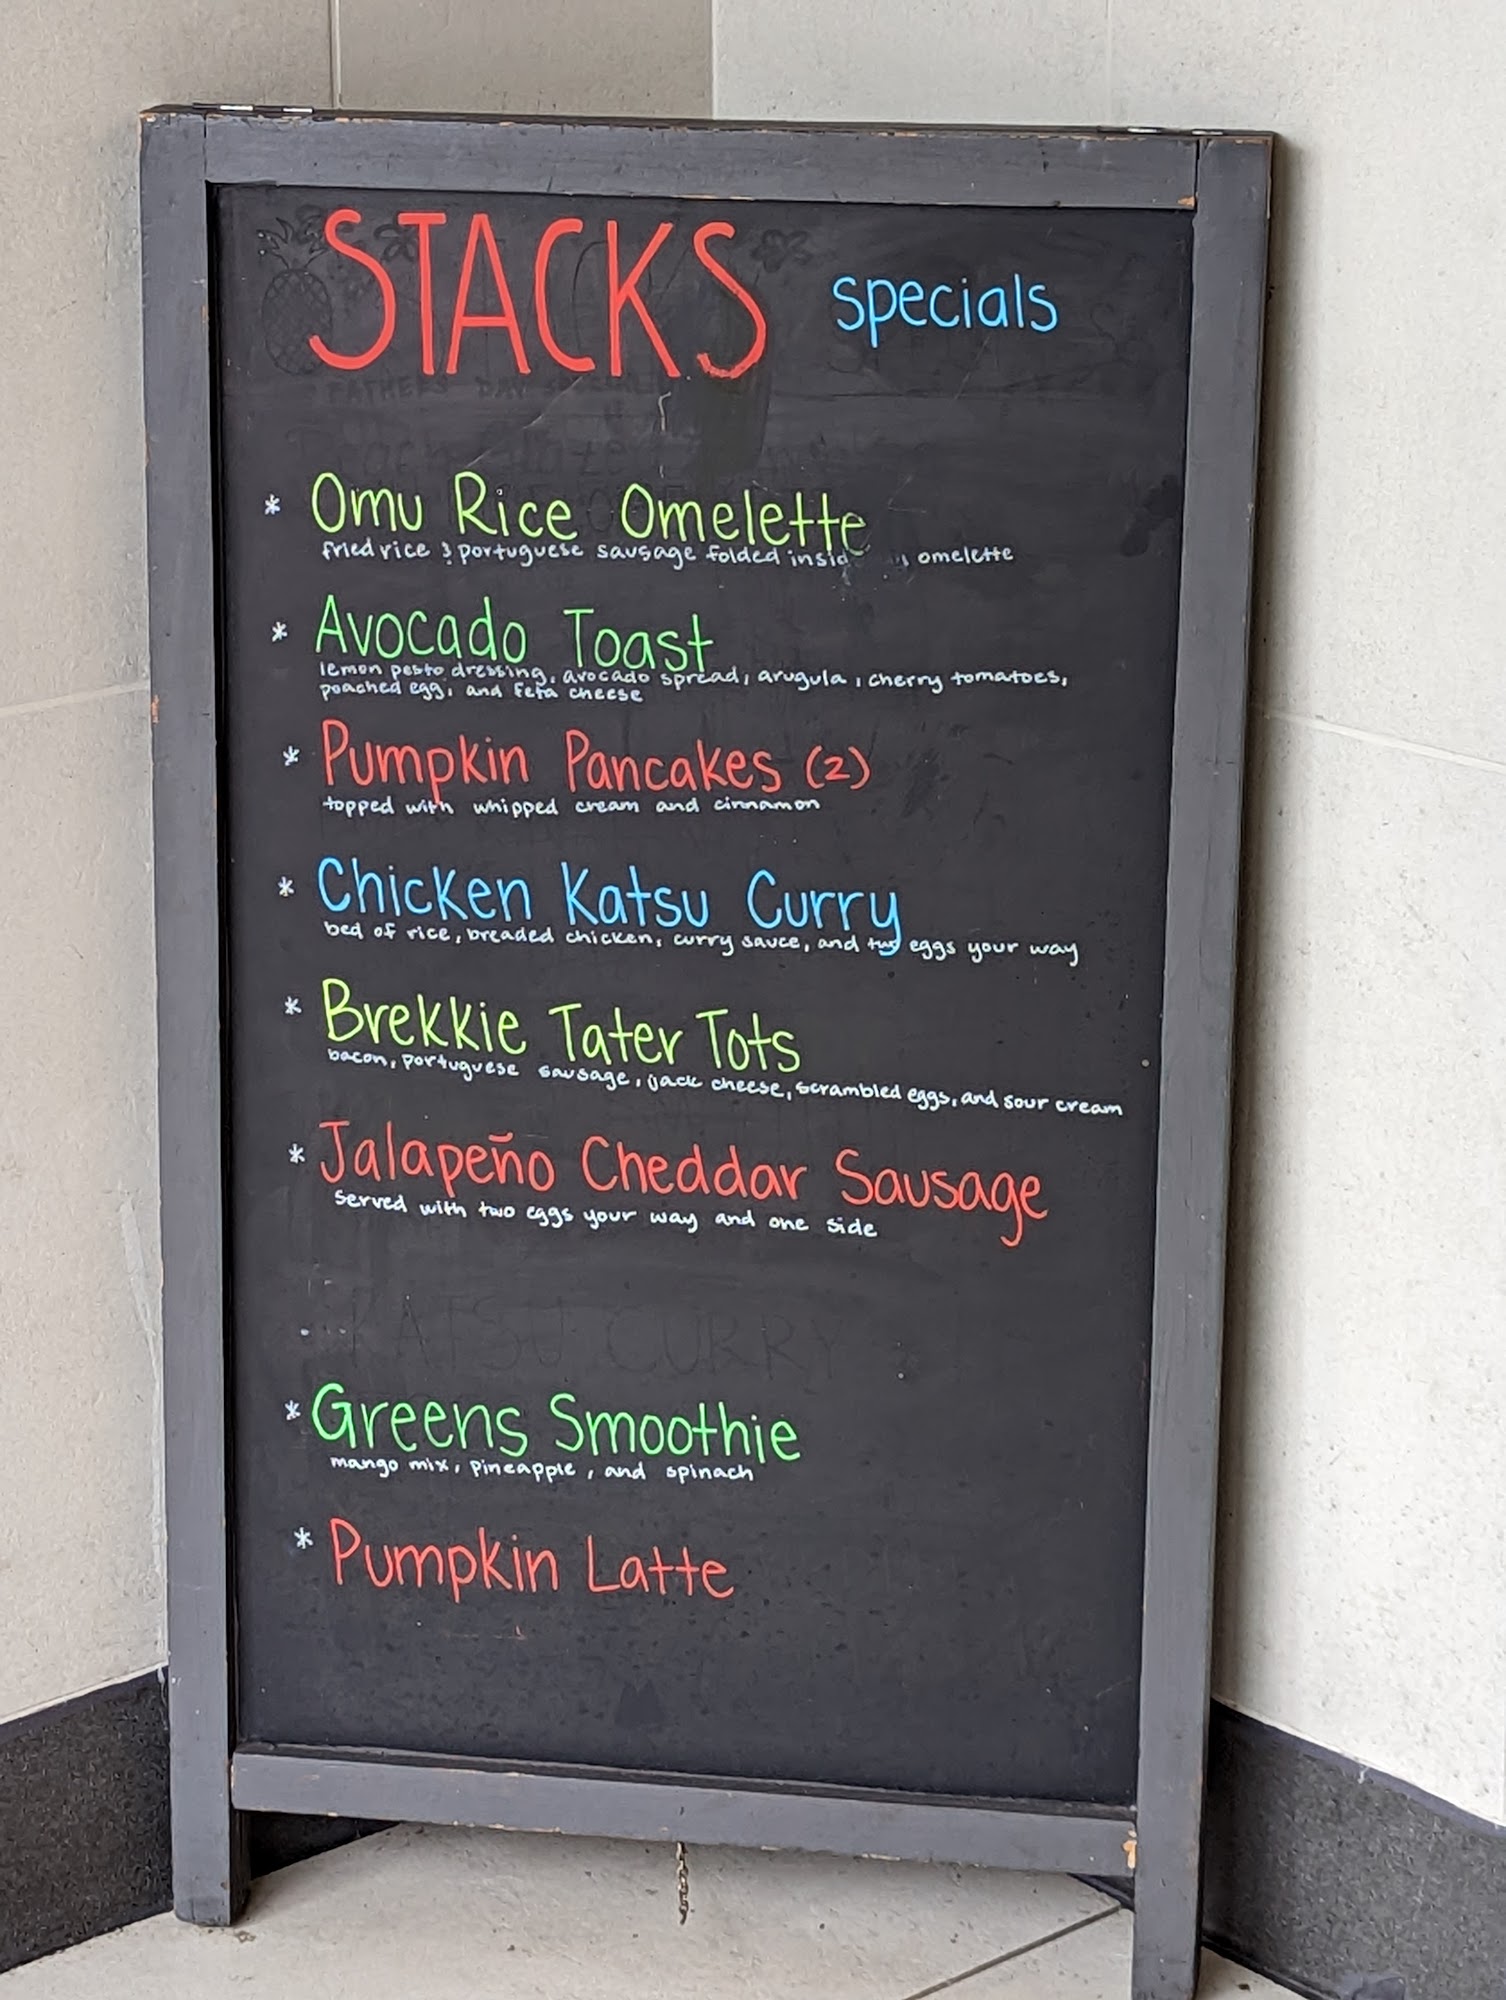 STACKS specials
* Omu Rice Omelette
fried rice & portuguese sausage folded inside omelette
* Avocado Toast
lemon pesto dressing, avocado spread, arugula, cherry tomatoes,
poached egg, and feta cheese
* Pumpkin Pancakes (2)
topped with whipped cream and cinnamon
* Chicken Katsu Curry
bed of rice, breaded chicken, curry sauce, and two eggs your way
* Brekkie Tater Tots
bacon, portuguese sausage, jack cheese, scrambled eggs, and sour cream
* Jalapeño Cheddar Sausage
served with two eggs your way and one side
KATSU CURRY
* Greens Smoothie
mango mix, pineapple, and spinach
* Pumpkin Latte